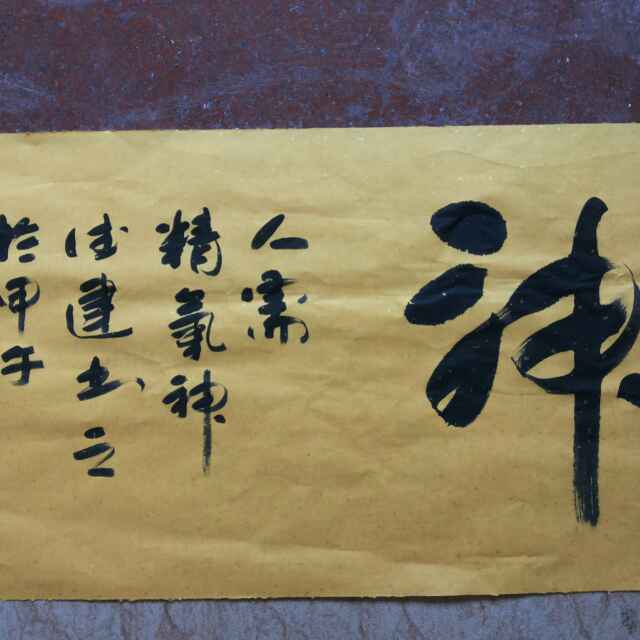 神
人需
精氣神
建书之
於甲午